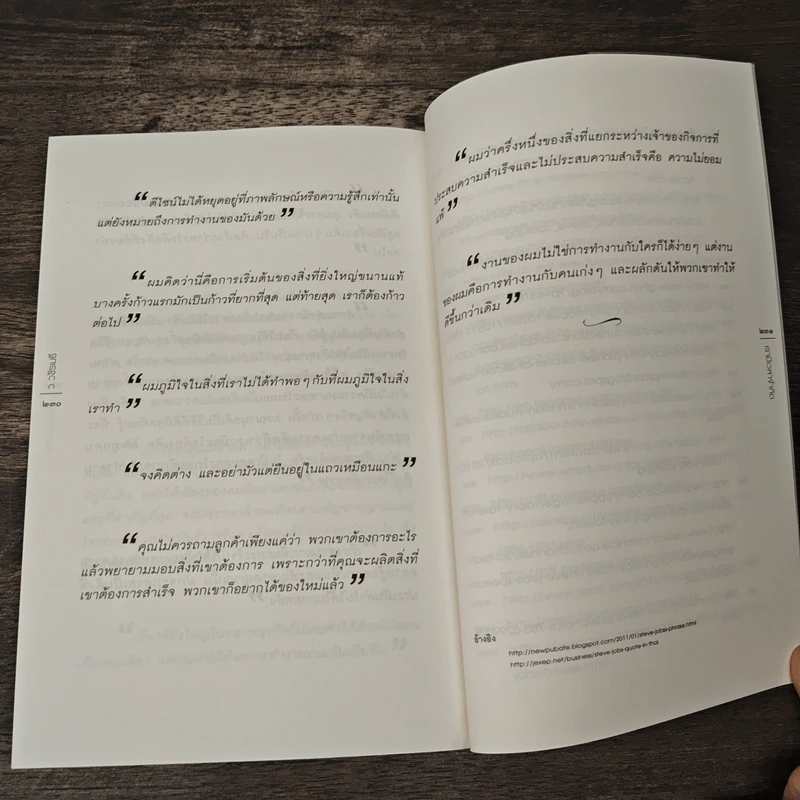 “ ดีไซน์ไม่ได้หยุดอยู่ที่ภาพลักษณ์หรือความรู้สึกเท่านั้น
แต่ยังหมายถึงการทำงานของมันด้วย ”
“ ผมคิดว่านี่คือการเริ่มต้นของสิ่งที่ยิ่งใหญ่ขนานแท้
บางครั้งก้าวแรกมักเป็นก้าวที่ยากที่สุด แต่ท้ายสุด เราก็ต้องก้าว
ต่อไป ”
“ ผมภูมิใจในสิ่งที่เราไม่ได้ทำพอๆ กับที่ผมภูมิใจในสิ่ง
เราทำ ”
“ จงคิดต่าง และอย่ามัวแต่ยืนอยู่ในแถวเหมือนแกะ ”
“ คุณไม่ควรถามลูกค้าเพียงแค่ว่า พวกเขาต้องการอะไร
แล้วพยายามมอบสิ่งที่เขาต้องการ เพราะกว่าที่คุณจะผลิตสิ่งที่
เขาต้องการสำเร็จ พวกเขาก็อยากได้ของใหม่แล้ว ”
“ ผมว่าครึ่งหนึ่งของสิ่งที่แยกระหว่างเจ้าของกิจการที่
ประสบความสำเร็จและไม่ประสบความสำเร็จคือ ความไม่ยอม
แพ้ ”
“ งานของผมไม่ใช่การทำงานกับใครก็ได้ง่ายๆ แต่งาน
ของผมคือการทำงานกับคนเก่งๆ และผลักดันให้พวกเขาทำให้
ดีขึ้นกว่าเดิม ”
อ้างอิง
http://newpubate.blogspot.com/2011/01/steve-jobs-phrase.html
http://jexep.net/business/steve-jobs-quote-in-thai